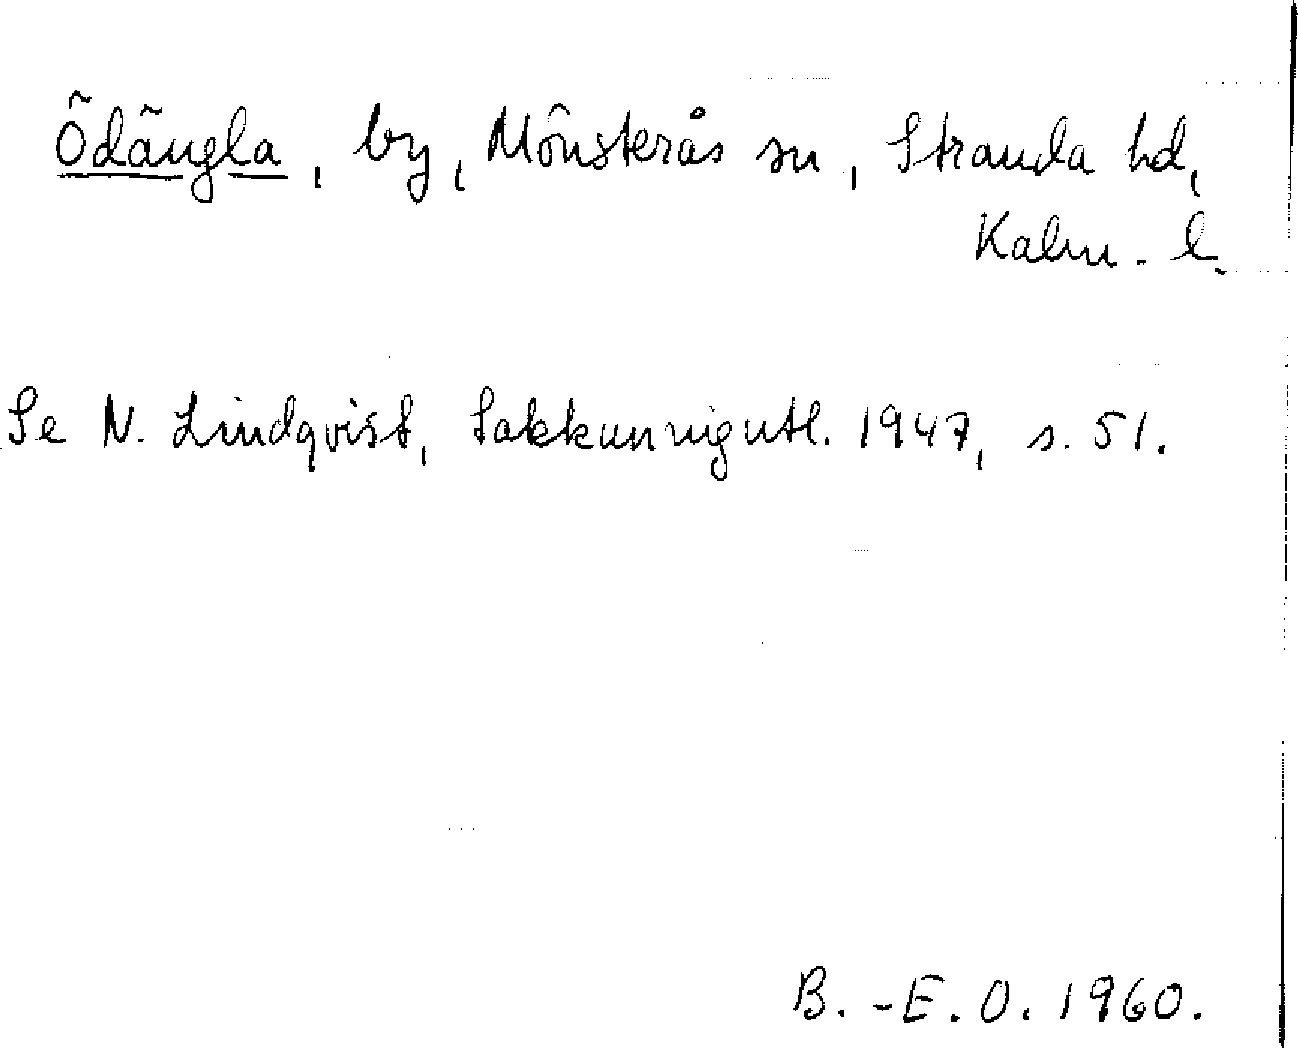 Ödängla, by, Mönsterås sn, Stranda hd,
Kalm. l.
Se N. Lindqvist, Sakkunnigutl. 1947, s. 51.
B.-E.O. 1960.